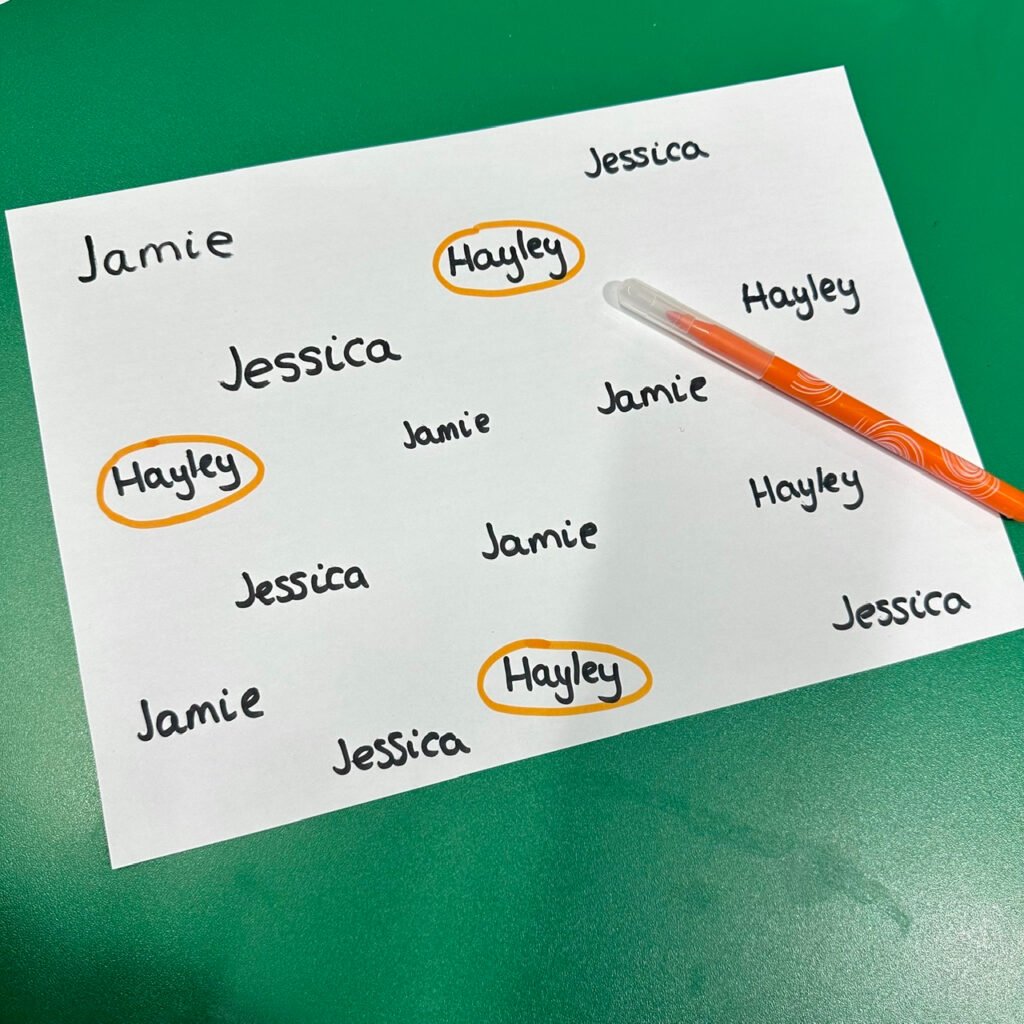 Jessica
Jamie
Hayley
Hayley
Jessica
Jamie
Jamie
Hayley
Hayley
Jamie
Jessica
Jessica
Hayley
Jamie
Jessica